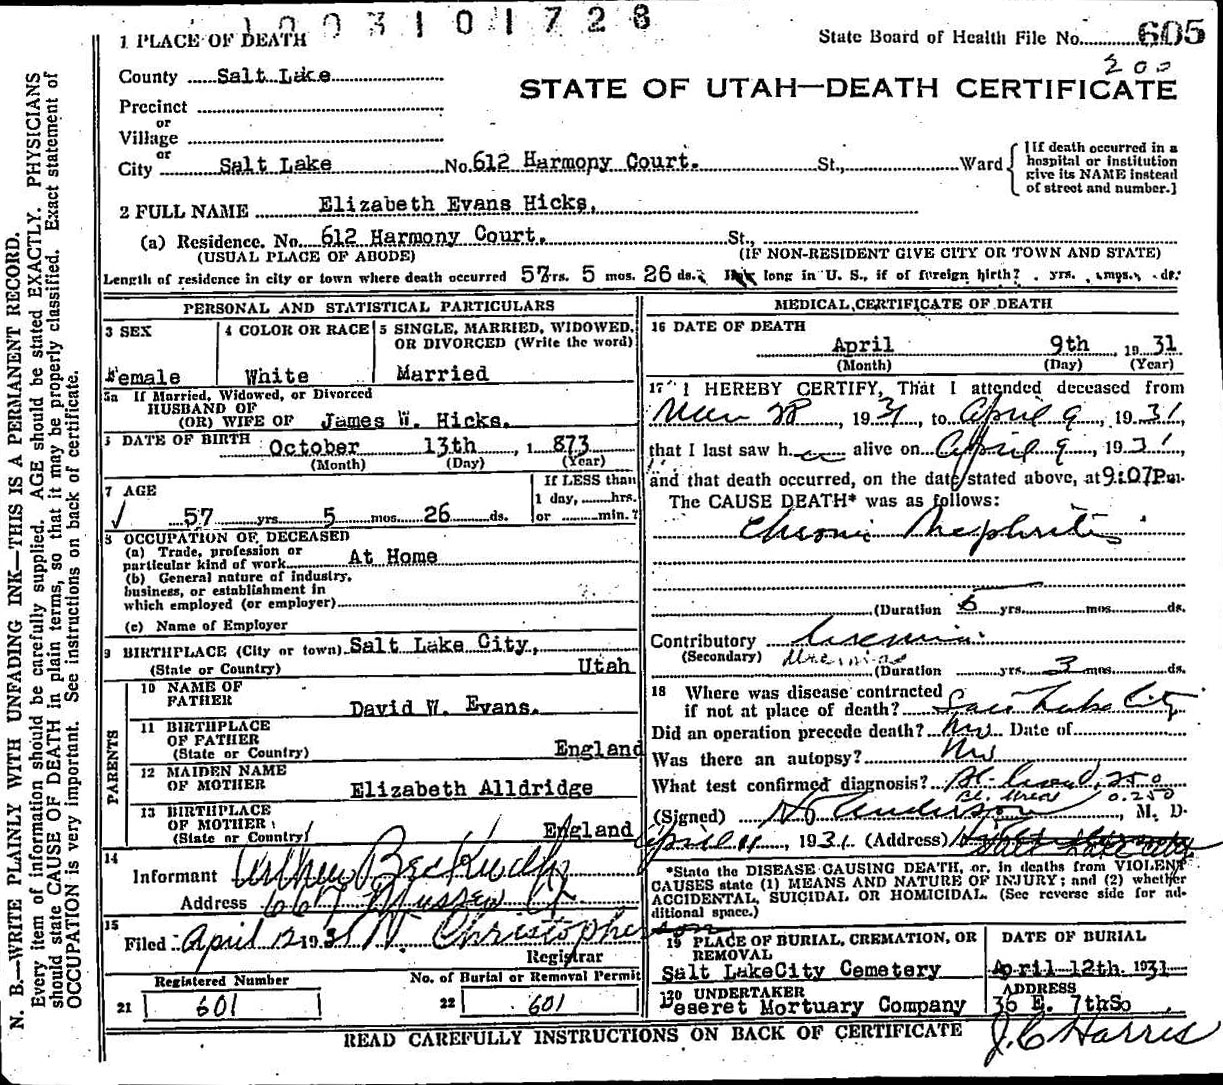 1003101728
1 PLACE OF DEATH
State Board of Health File No. 605
200
County Salt Lake
STATE OF UTAH—DEATH CERTIFICATE
Precinct
or
Village
or
City Salt Lake No. 612 Harmony Court. St., Ward
[If death occurred in a
hospital or institution
give its NAME instead
of street and number.]
2 FULL NAME Elizabeth Evans Hicks.
(a) Residence. No. 612 Harmony Court. St.,
(USUAL PLACE OF ABODE) (IF NON-RESIDENT GIVE CITY OR TOWN AND STATE)
Length of residence in city or town where death occurred 57 yrs. 5 mos. 26 ds. How long in U. S., if of foreign birth? yrs. mos. ds.
PERSONAL AND STATISTICAL PARTICULARS
3 SEX
Female
4 COLOR OR RACE
White
5 SINGLE, MARRIED, WIDOWED,
OR DIVORCED (Write the word)
Married
5a If Married, Widowed, or Divorced
HUSBAND OF
(OR) WIFE OF James W. Hicks.
DATE OF BIRTH October 13th, 1 873
(Month) (Day) (Year)
7 AGE
57 yrs. 5 mos. 26 ds.
If LESS than
1 day, hrs.
or min.?
8 OCCUPATION OF DECEASED
(a) Trade, profession or
particular kind of work At Home
(b) General nature of industry,
business, or establishment in
which employed (or employer)
(c) Name of Employer
9 BIRTHPLACE (City or town) Salt Lake City,
(State or Country) Utah
PARENTS
10 NAME OF
FATHER David W. Evans.
11 BIRTHPLACE
OF FATHER
(State or Country) England
12 MAIDEN NAME
OF MOTHER Elizabeth Alldridge
13 BIRTHPLACE
OF MOTHER
(State or Country) England
14
Informant Arthur
Address 667
15
Filed April 12 1931 Christopherson
Registrar
Registered Number
21 601
No. of Burial or Removal Permit
22 601
MEDICAL CERTIFICATE OF DEATH
16 DATE OF DEATH
April 9th, 1931
(Month) (Day) (Year)
17 I HEREBY CERTIFY, That I attended deceased from
28 1931, to April 9, 1931,
that I last saw h alive on April 9, 1931,
and that death occurred, on the date stated above, at 9:07P.m.
The CAUSE DEATH* was as follows:
Chronic Nephritis
(Duration 5 yrs. mos. ds.
Contributory Uremia.
(Secondary) Uremias
(Duration yrs. 3 mos. ds.
18 Where was disease contracted
if not at place of death? Salt Lake City
Did an operation precede death? No Date of
Was there an autopsy? No
What test confirmed diagnosis? 250
Bl. Urea 0.250
(Signed) Anderson, M. D.
April 11, 1931. (Address)
*State the DISEASE CAUSING DEATH, or, in deaths from VIOLENT
CAUSES state (1) MEANS AND NATURE OF INJURY; and (2) whether
ACCIDENTAL, SUICIDAL OR HOMICIDAL. (See reverse side for ad-
ditional space.)
19 PLACE OF BURIAL, CREMATION, OR
REMOVAL
Salt LakeCity Cemetery
DATE OF BURIAL
April 12th 1931
20 UNDERTAKER
Deseret Mortuary Company
ADDRESS
36 E. 7thSo
J. C Harris
READ CAREFULLY INSTRUCTIONS ON BACK OF CERTIFICATE
N. B.—WRITE PLAINLY WITH UNFADING INK—THIS IS A PERMANENT RECORD.
Every item of information should be carefully supplied. AGE should be stated EXACTLY. PHYSICIANS
should state CAUSE OF DEATH in plain terms, so that it may be properly classified. Exact statement of
OCCUPATION is very important. See instructions on back of certificate.